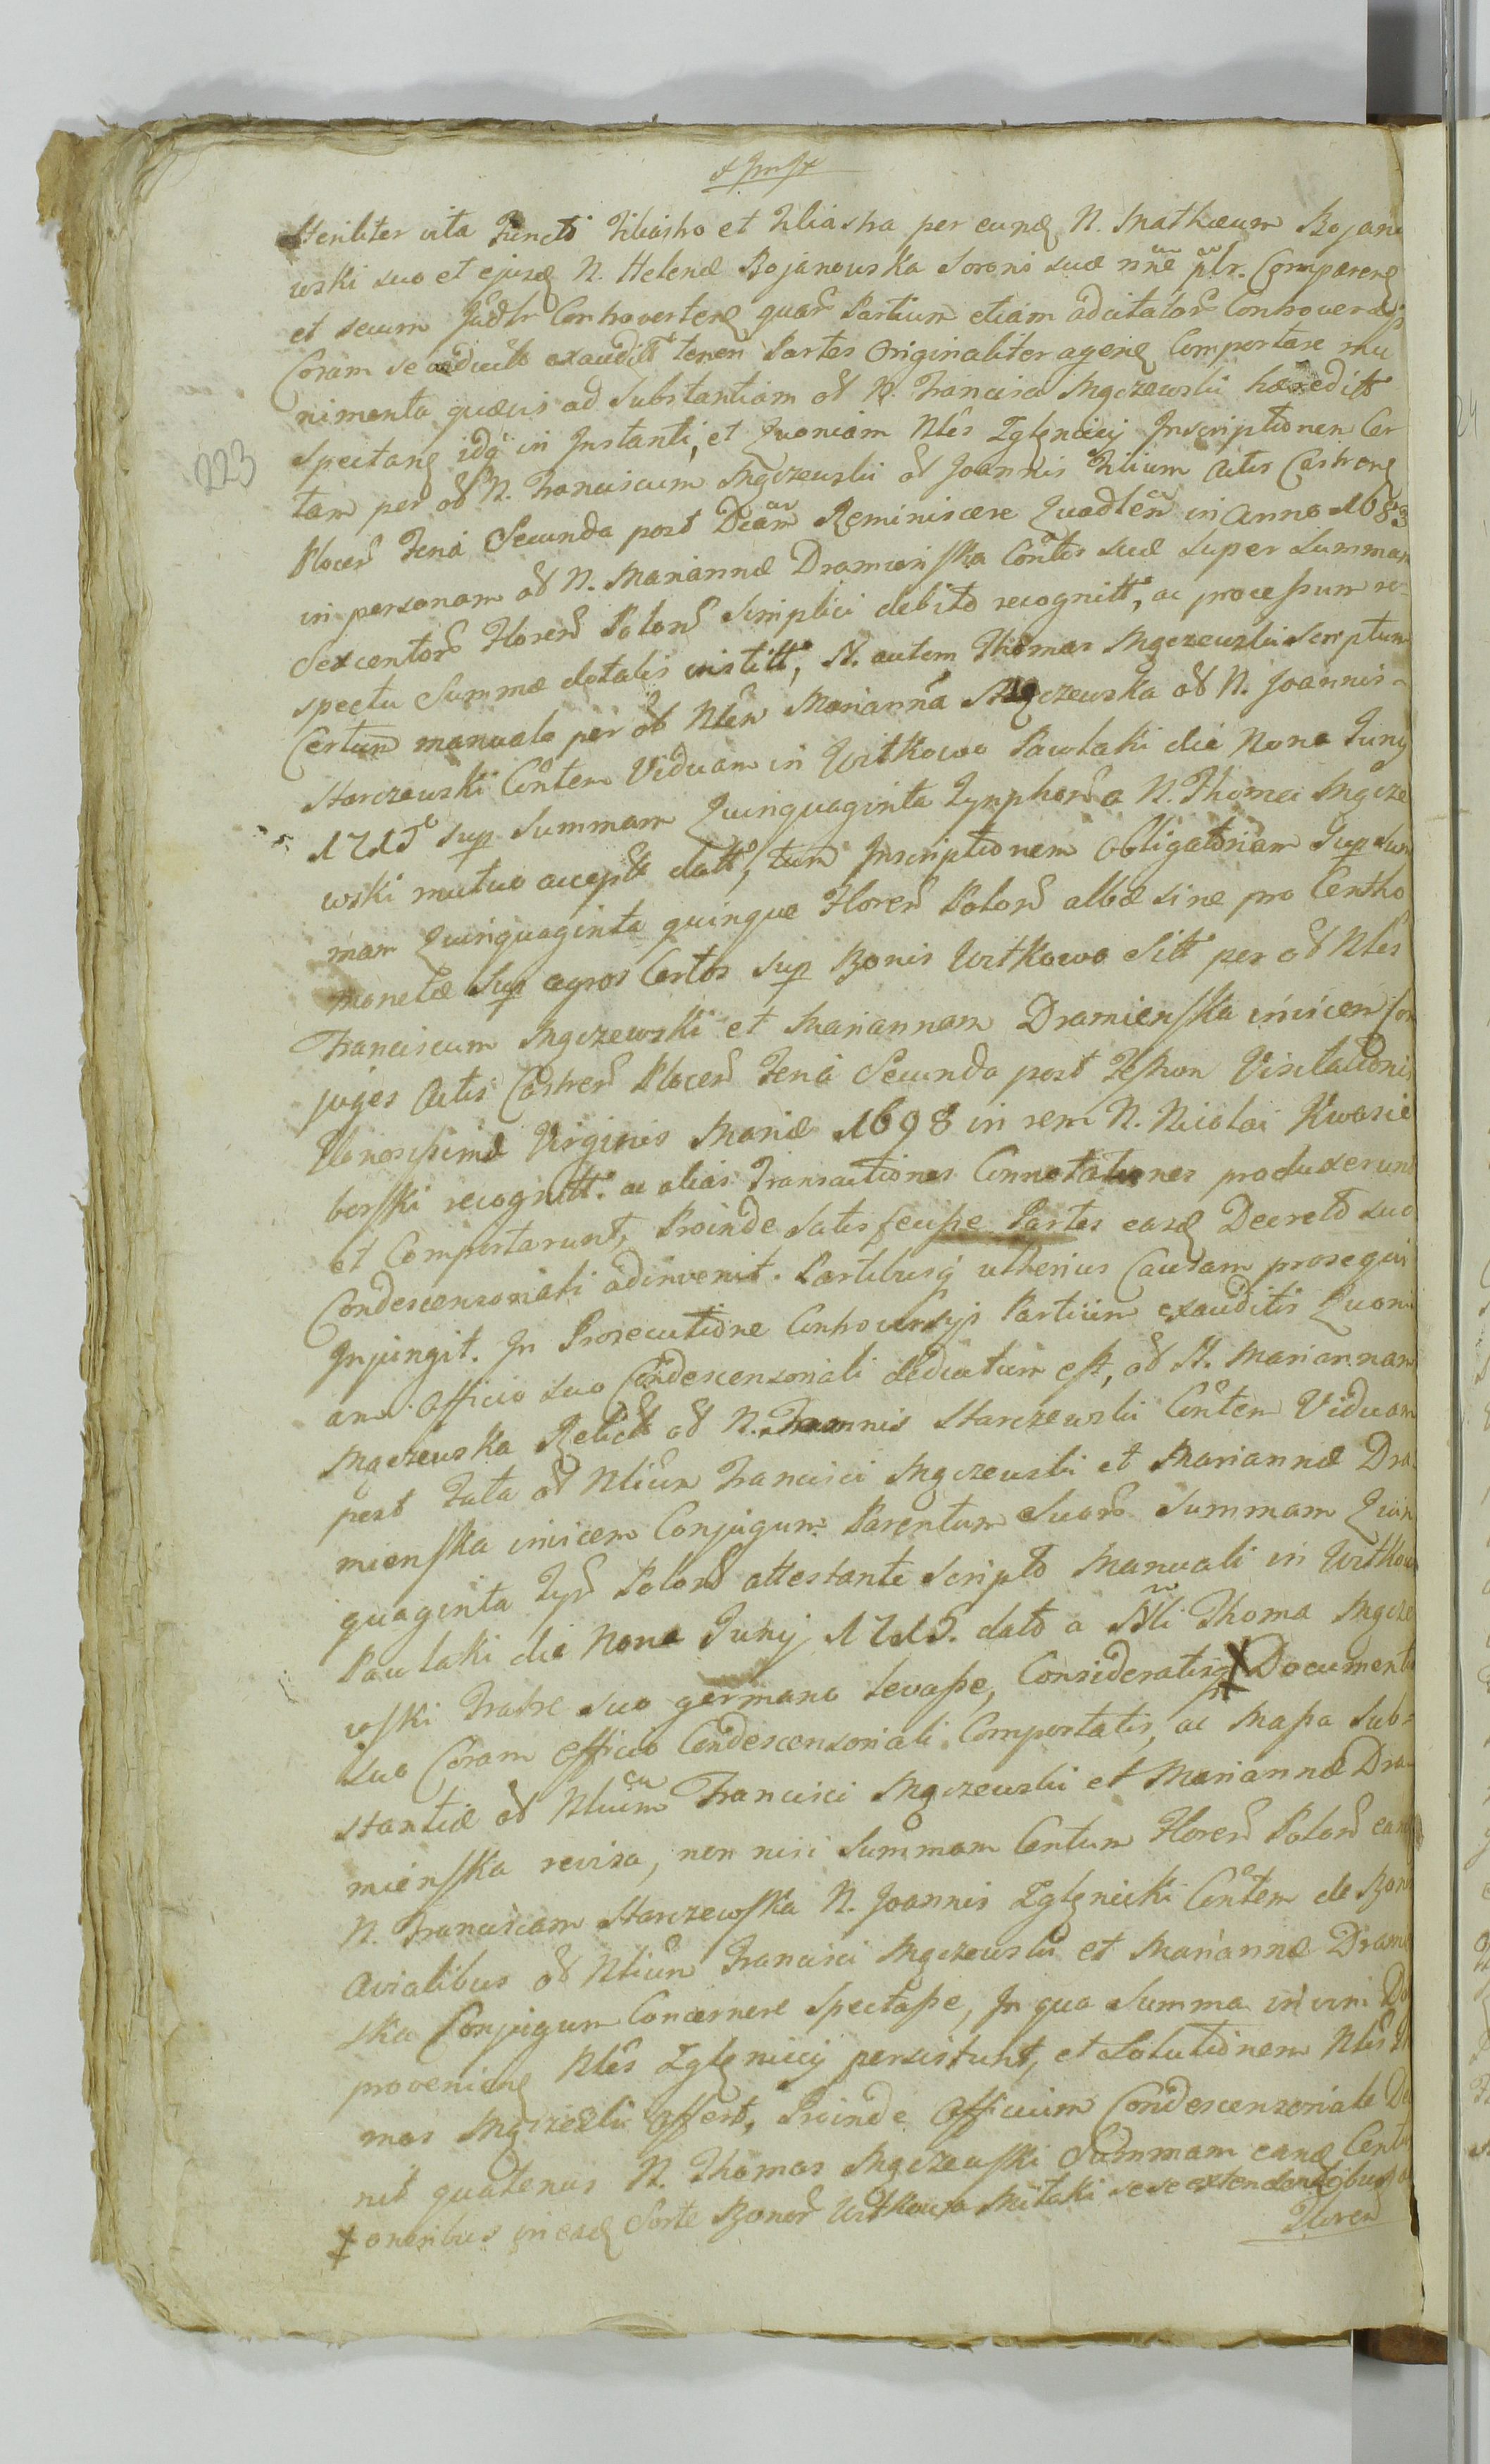 Steriliter vita Functi Filiastro et Filiastra per eund N. Mathæum Bojano
wski suo et ejusd N. Helenæ Bojanowska Sororis suæ nne plr. Comparend
et secum Judlr Controvertend quar Partium etiam adcitator Controversijs
Coram se exauditt teneri Partes Originaliter agend Comportare mu
nimenta quævis ad Substantiam od N. Francisci Mączewski hæreditt
Spectand idq in Instanti, et Quoniam Nles Zglenicij Inscriptionem Cer
223
tam per od N. Franciscum Mączewski od Joannis Filium Actis Castrens
Plocen Feria Secunda post Dcam Reminiscere Quadlem in Anno 1683
in personam od N. Mariannæ Dramienska Contis suæ super Summam
Sexcentor Floren Polon Simplici debito recognitt, ac processum re-
spectu Summæ dotalis institt, N. autem Thomas Mączewski Scriptum
Certum manuale per od Nlem Marianna Mączewska od N. Joannis
Starczewski Contem Viduam in Witkowo Pawlaki die Nona Junij
1715 sup Summam Quinquaginta Tynphor a N. Thoma Mącze
wski mutuo accept datt, tum Inscriptionem Obligatoriam Sup Sum
mam Quinquaginta quinque Floren Polon albæ sine pro Centro
monetæ Sup agros Certos sup Bonis Witkowo Sitt per od Nles
Franciscum Mączewski et Mariannam Dramienska invicem Con
juges Actis Castren Plocen Feria Secunda post Festum Visitationis
Glonosissimæ Virginis Mariæ 1698 in rem N. Nicolai Kwasie
borski recognitt. ac alias Transactiones Connotationes produxerunt
et Comportarunt, Proinde Satisfecisse Partes easd Decreto suo
Condescensoriali adinvenit. Partibusq ulterius Causam prosequi
Injungit. In Prosecutione Controversijs Partium exauditis Quoni
am Officio suo Condescensoriali deductum est, od N. Mariannam
Mączewska Relict od N. Joannis Starczewski Contem Viduam
post Fata od Nlium Francisci Mączewski et Mariannæ Dra
mienska invicem Conjugum Parentum Suor Summam Quin
quaginta Tyn Polon attestante Scripto Manuali in Witkowo
Pawlaki die Nona Junij 1715. dato a Nli Thoma Mącze
wski Fratre suo germano levasse, Consideratisq X Documentis
suo Coram Officio Condescensoriali Comportatis, ac Massa Sub=
stantiæ od Nlium Francisci Mączewski et Mariannæ Dra
mienska revisa, non nisi Summam Centum Floren Polon eand
N. Franciscam Starczewska N. Joannis Zglenicki Contem de Bonis
Avialibus od Nlium Francisci Mączewski et Mariannæ Dramie
ska Conjugum Concernere Spectasse, In qua Summa in vim Do
proveniend Nles Zglenicij persistunt, et Solutionem Nlis Tho
mas Mączewski offert, Proinde Officium Condescensoriale De
nit quatenus N. Thomas Mączewski Summam eand Centum
X oneribus in ead Sorte Bonor Witkowo Mitaki sese extendentibus
Floren